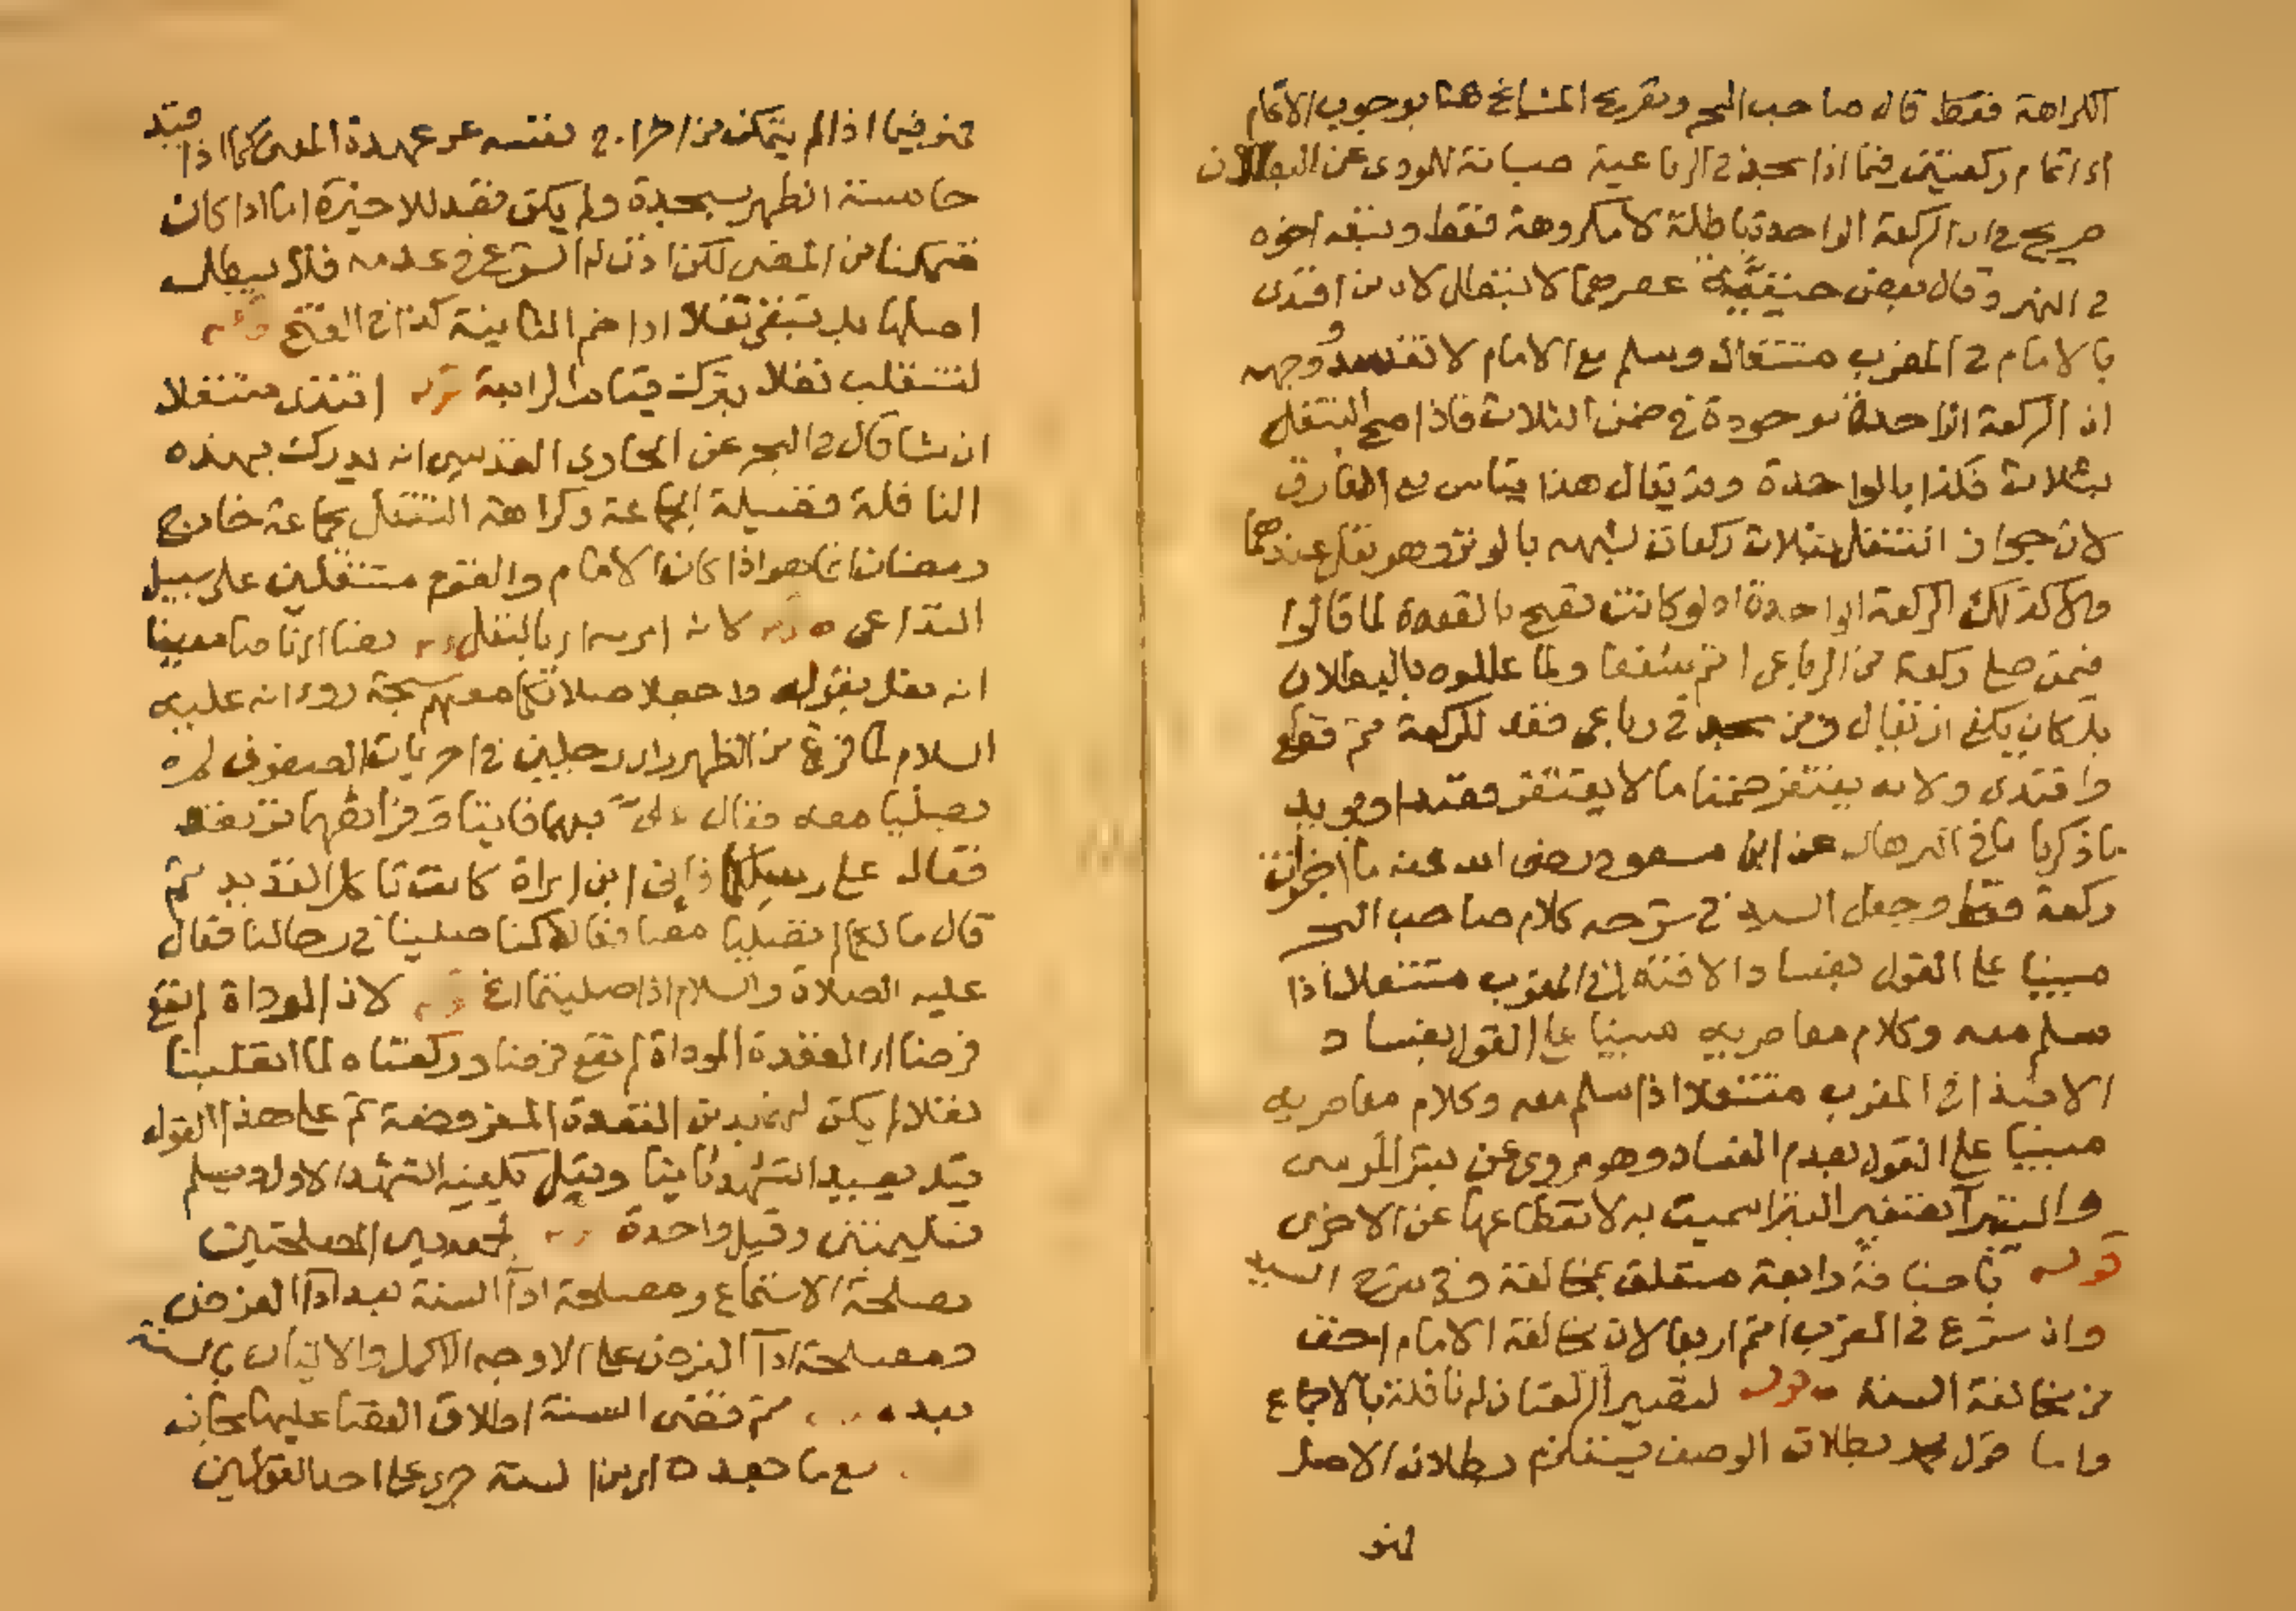 الكراهة فقط قال صاحب البحر وتصريح المشايخ هنا بوجوب الاتمام
اى اتمام ركعتين فيما اذا سجد فى الرباعية صيانة للمودى عن البطلان
صريح فى ان الركعة الواحدة باطلة لا مكروهة فقط وتبعه اخوه
فى النهر وقال بعض حنفية عصرهما لا تبطل لان من اقتدى
بالامام فى المغرب متنفلا وسلم مع الامام لا تفسد وجهه
ان الركعة الواحدة موجودة فى ضمن الثلاث فاذا صح التنفل
بثلاث فكذا بالواحدة وقد يقال هذا قياس مع الفارق
لان جواز التنفل بثلاث ركعات لشبهه بالوتر وهو نفل عندهما
ولا كذلك الركعة الواحدة اذ لو كانت تصح بالقعدة لما قالوا
فيمن صلى ركعة من الرباعى اتم شفعا ولما عللوه بالبطلان
بل كان يكفى ان يقال ومن سجد فى رباعى فقد للركعة ثم قطع
واقتدى ولانه يغتفر ضمنا ما لا يغتفر قصدا ويويد
ما ذكرنا ما فى البرهان عن ابن مسعود رضى الله عنه ما اجزات
ركعة قط وجعل السيد فى شرحه كلام صاحب البحر
مبنيا على القول بفساد الاقتدا فى المغرب متنفلا اذا
سلم معه وكلام معاصريه مبنيا على القول بفساد
الاقتدا فى المغرب متنفلا اذا سلم معه وكلام معاصريه
مبنيا على القول بعدم الفساد وهو مروى عن بشر المريسى
والبتيرا تصغير البترا سميت به لانقطاعها عن الاخرى
قوله باضافة رابعة متعلق بمخالفة وفى شرح السيد
وان شرع فى المغرب اتم اربعا لان مخالفة الامام اخف
من مخالفة السنة قوله لتصير الركعتان له نافلة بالاجماع
واما قول محمد بطلان الوصف يستلزم بطلان الاصل
لهو
فهو فيما اذا لم يتمكن من اخراج نفسه عن عهدة المضى كما اذا قيد
خامسة الظهر بسجدة ولم يكن قعد للاخيرة اما اذا كان
متمكنا من المضى لكن اذن له الشرع فى عدمه فلا يبطل
اصلها بل تبقى نفلا اذا ضم الثانية كذا فى الفتح قوله
لتنقلب نفلا بترك قيام الرابعة قوله اقتدى متنفلا
ان شا قال فى البحر عن الحاوى القدسى انه يدرك بهذه
النافلة فضيلة الجماعة وكراهة التنفل بجماعة خارج
رمضان انما هو اذا كان الامام والقوم متنفلين على سبيل
التداعى قوله لانه امر به اى بالنفل قوله نصا اى نصا مبينا
انه نفل بقوله واجعلا صلاتكما معهم سبحة روى انه عليه
السلام لما فرغ من الظهر راى رجلين فى اخريات الصفوف لم
يصليا معه فقال على بهما فاتيا وفرائصهما ترتعد
فقال على رسلكما فانى ابن امراة كانت تاكل القديد ثم
قال ما لكما لم تصليا معنا فقالا كنا صلينا فى رحالنا فقال
عليه الصلاة والسلام اذا صليتما الخ قوله لان الموداة لم تقع
فرضا اى القعدة الموداة لم تقع فرضا وركعتاه لما انقلبتا
نفلا لم يكن له بد من القعدة المفروضة ثم على هذا القول
قيل يعيد التشهد ثانيا وقيل يكفيه التشهد الاول ويسلم
تسليمتين وقيل واحدة قوله لجمعه بين المصلحتين
مصلحة الاستماع ومصلحة ادآ السنة بعد ادآ الفرض
ومصلحة ادآ الفرض على الاوجه الاكمل والاتيان بالسنة
بعده ثم قضى السنة اطلاق القضا عليها مجاز
مع ما بعده اى من السنة جرى على احد القولين